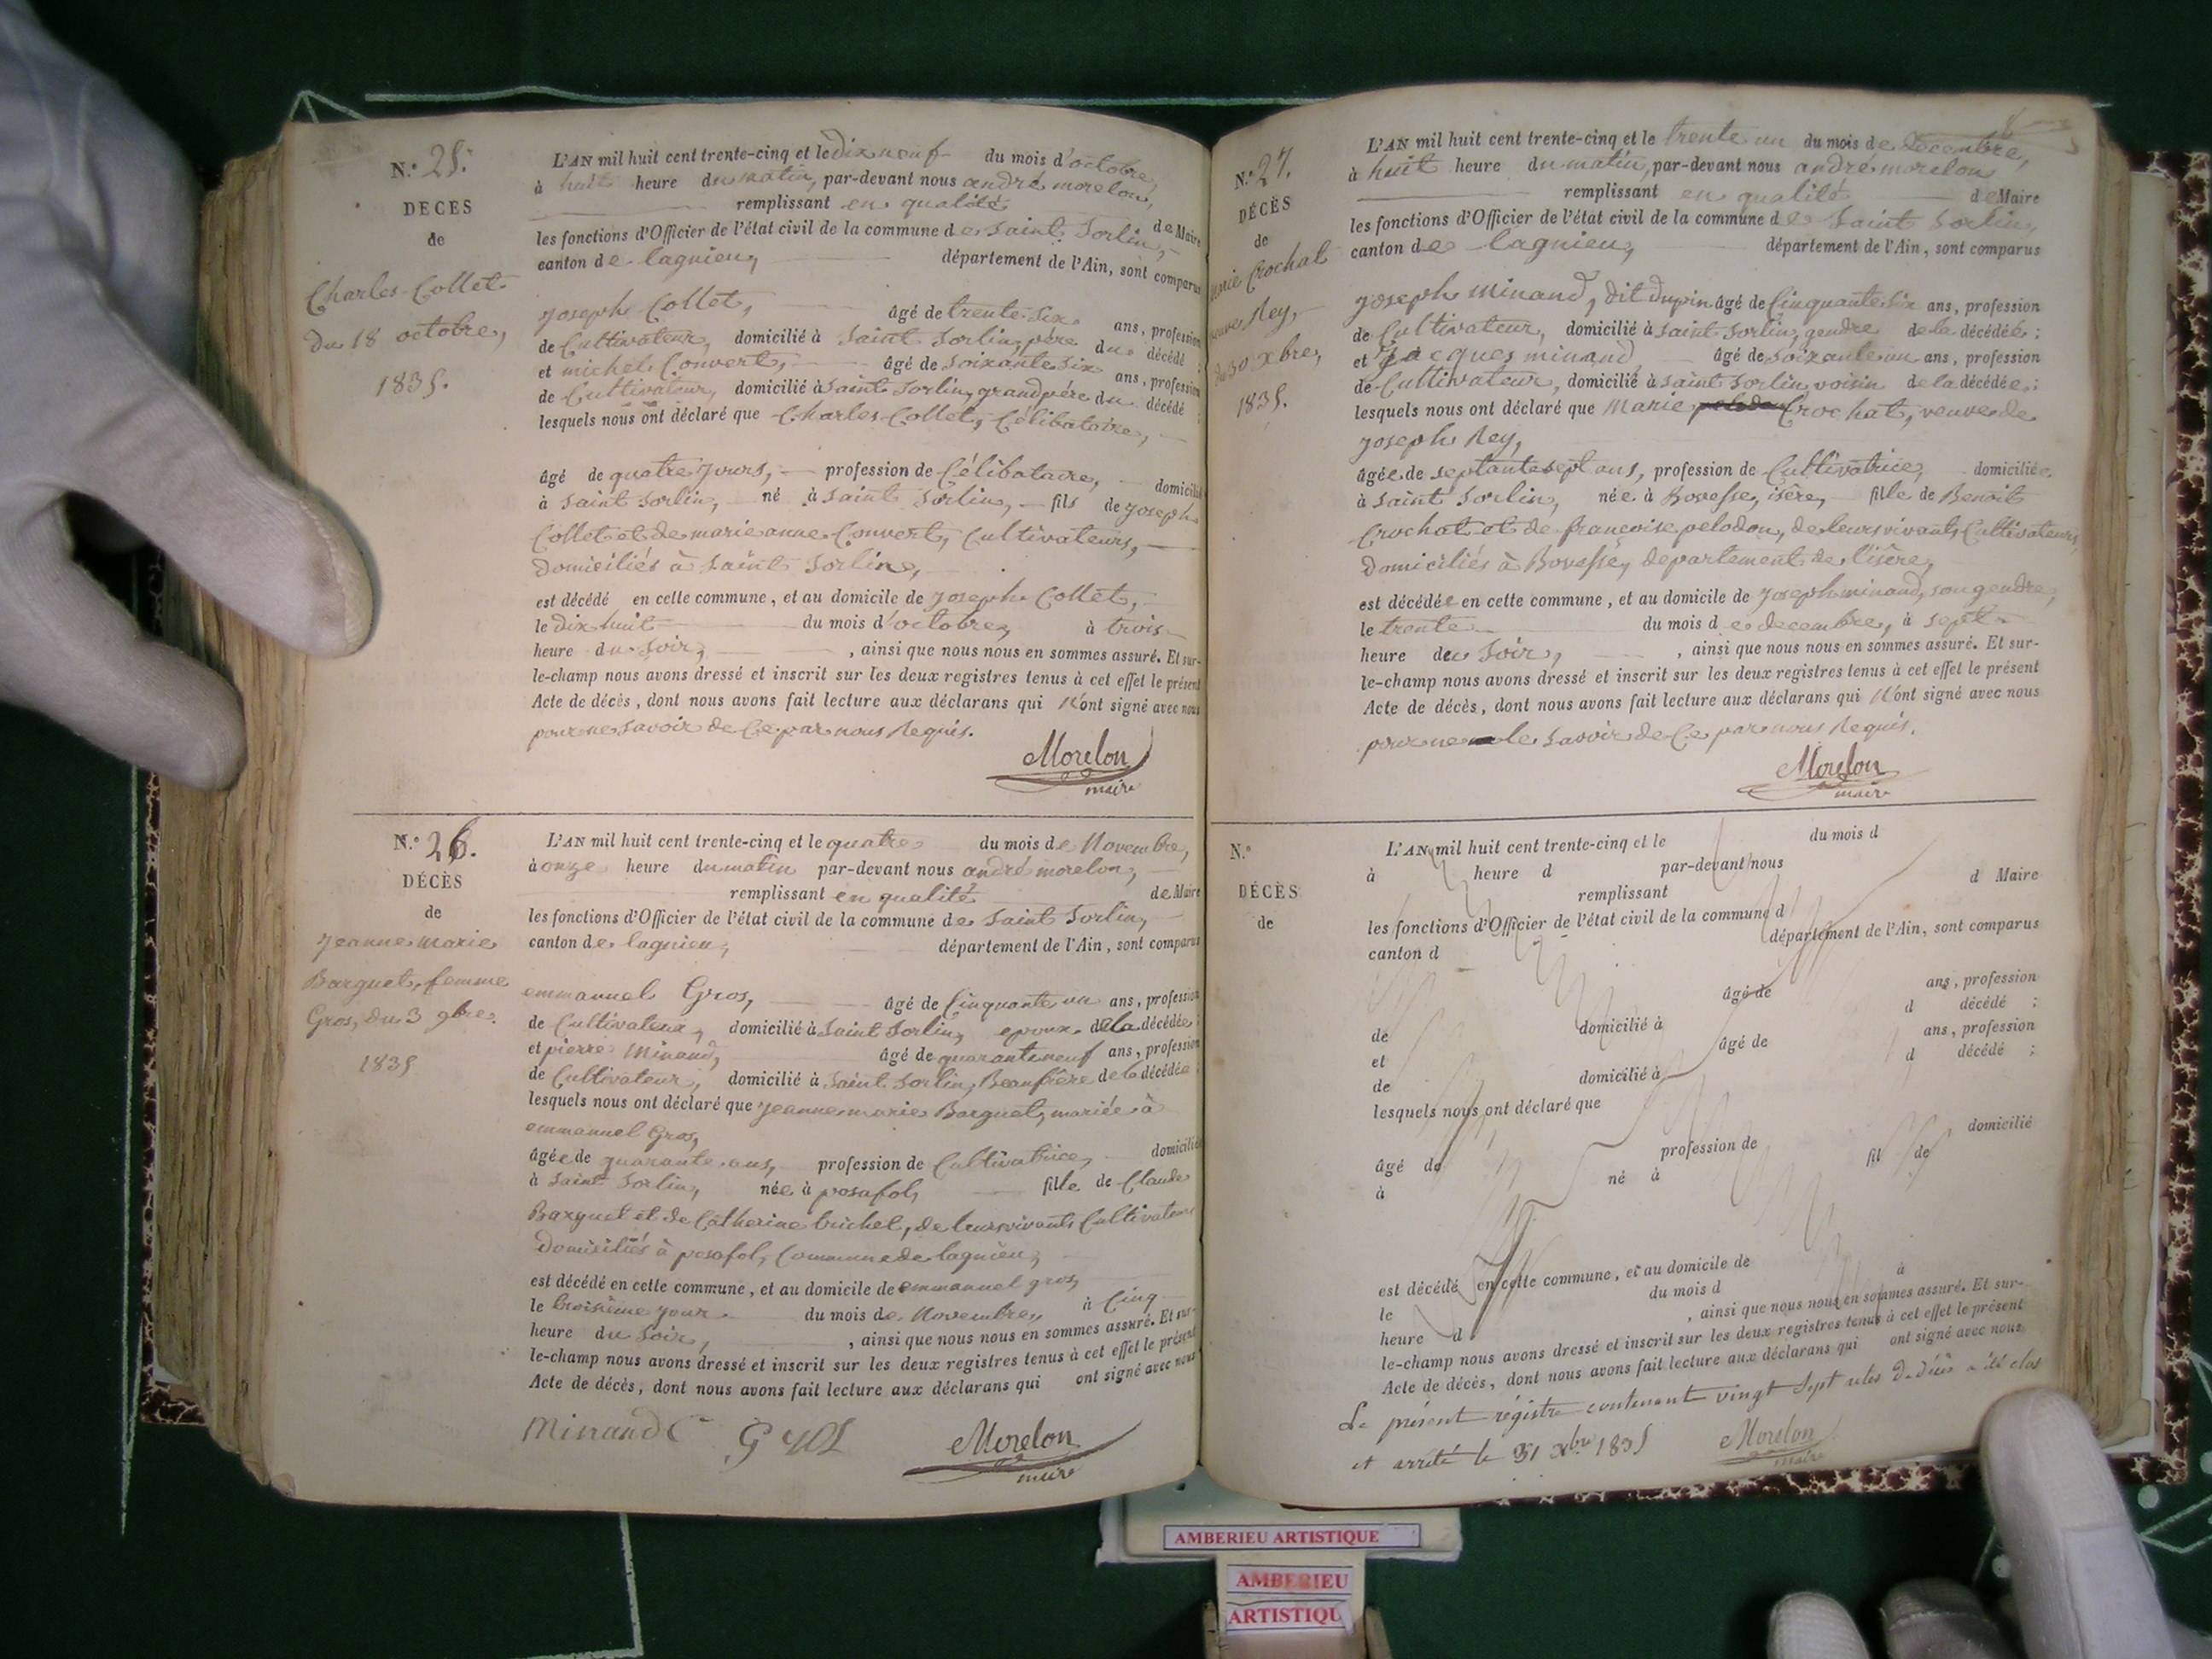 N.º 25.
DÉCÈS
de
Charles Collet
Du 18 octobre,
1835.
L'AN mil huit cent trente-cinq et le dix neuf du mois d'octobre,
à huit heure du matin, par-devant nous andré morelon,
remplissant en qualité de Maire
les fonctions d'Officier de l'état civil de la commune de Saint Sorlin,
canton de lagnieu, département de l'Ain, sont comparus
Joseph Collet, âgé de trente six ans, profession
de Cultivateur, domicilié à Saint Sorlin, père du décédé ;
et michel Convert, âgé de soixante six ans, profession
de Cultivateur, domicilié à Saint Sorlin, grand père du décédé ;
lesquels nous ont déclaré que Charles Collet, Célibataire,
âgé de quatre jours, profession de Célibataire, domicilié
à Saint Sorlin, né à Saint Sorlin, fils de Joseph
Collet et de marie anne Convert, Cultivateurs,
Domiciliés à Saint Sorlin,
est décédé en cette commune, et au domicile de Joseph Collet,
le dix huit du mois d'octobre, à trois
heure du Soir, , ainsi que nous nous en sommes assuré. Et sur-
le-champ nous avons dressé et inscrit sur les deux registres tenus à cet effet le présent
Acte de décès, dont nous avons fait lecture aux déclarans qui N'ont signé avec nous
pour ne Savoir de Ce par nous Requis.
Morelon
maire
N.º 26.
DÉCÈS
de
Jeanne Marie
Barquet, femme
Gros, du 3 9bre
1835
L'AN mil huit cent trente-cinq et le quatre du mois de Novembre,
à onze heure du matin par-devant nous andré morelon,
remplissant en qualité de Maire
les fonctions d'Officier de l'état civil de la commune de Saint Sorlin,
canton de lagnieu, département de l'Ain, sont comparus
emmanuel Gros, âgé de Cinquante un ans, profession
de Cultivateur, domicilié à Saint Sorlin, epoux de la décédée ;
et pierre Minand, âgé de quarante neuf ans, profession
de Cultivateur, domicilié à Saint Sorlin, Beaufrère de la décédée ;
lesquels nous ont déclaré que Jeanne marie Barquet, mariée à
emmanuel Gros,
âgée de quarante ans, profession de Cultivatrice, domicilié
à Saint Sorlin, née à posafol, fille de Claude
Barquet et de Catherine trichet, de leurs vivants Cultivateurs
Domiciliés à posafol, Commune de lagnieu,
est décédé en cette commune, et au domicile de emmanuel gros,
le troisième jour du mois de Novembre, à Cinq
heure du Soir, , ainsi que nous nous en sommes assuré. Et sur-
le-champ nous avons dressé et inscrit sur les deux registres tenus à cet effet le présent
Acte de décès, dont nous avons fait lecture aux déclarans qui ont signé avec nous
Minand Gros Morelon
maire
N.º 27.
DÉCÈS
de
Marie Crochat
veuve Rey,
du 30 xbre,
1835.
L'AN mil huit cent trente-cinq et le trente un du mois de Décembre,
à huit heure du matin, par-devant nous andré morelon
remplissant en qualité de Maire
les fonctions d'Officier de l'état civil de la commune de Saint Sorlin,
canton de lagnieu, département de l'Ain, sont comparus
Joseph Minand, dit dupin âgé de Cinquante Six ans, profession
de Cultivateur, domicilié à Saint Sorlin, gendre de la décédée ;
et Jacques minand, âgé de soixante un ans, profession
de Cultivateur, domicilié à Saint Sorlin, voisin de la décédée ;
lesquels nous ont déclaré que Marie Crochat, veuve de
Joseph Rey,
âgée de septante sept ans, profession de Cultivatrice, domiciliée
à Saint Sorlin, née à Bovesse, isère, fille de Benoit
Crochat et de françoise pelodon, de leurs vivants Cultivateurs,
Domiciliés à Bovesse, departement de l'isère,
est décédée en cette commune, et au domicile de Joseph minand, son gendre,
le trente du mois de decembre, à sept
heure du Soir, , ainsi que nous nous en sommes assuré. Et sur-
le-champ nous avons dressé et inscrit sur les deux registres tenus à cet effet le présent
Acte de décès, dont nous avons fait lecture aux déclarans qui N'ont signé avec nous
pour ne le Savoir de Ce par nous Requis.
Morelon
maire
N.º
DÉCÈS
de
L'AN mil huit cent trente-cinq et le du mois d
à heure d par-devant nous
remplissant d Maire
les fonctions d'Officier de l'état civil de la commune d
canton d département de l'Ain, sont comparus
âgé de ans, profession
de domicilié à d décédé ;
et âgé de ans, profession
de domicilié à d décédé ;
lesquels nous ont déclaré que
âgé de profession de domicilié
à né à fil de
est décédé en cette commune, et au domicile de
le du mois d à
heure d , ainsi que nous nous en sommes assuré. Et sur-
le-champ nous avons dressé et inscrit sur les deux registres tenus à cet effet le présent
Acte de décès, dont nous avons fait lecture aux déclarans qui ont signé avec nous
Le présent régistre contenant vingt Sept actes de décès a été clos
et arrêté le 31 Xbre 1835
Morelon
maire
AMBERIEU ARTISTIQUE
AMBERIEU
ARTISTIQU